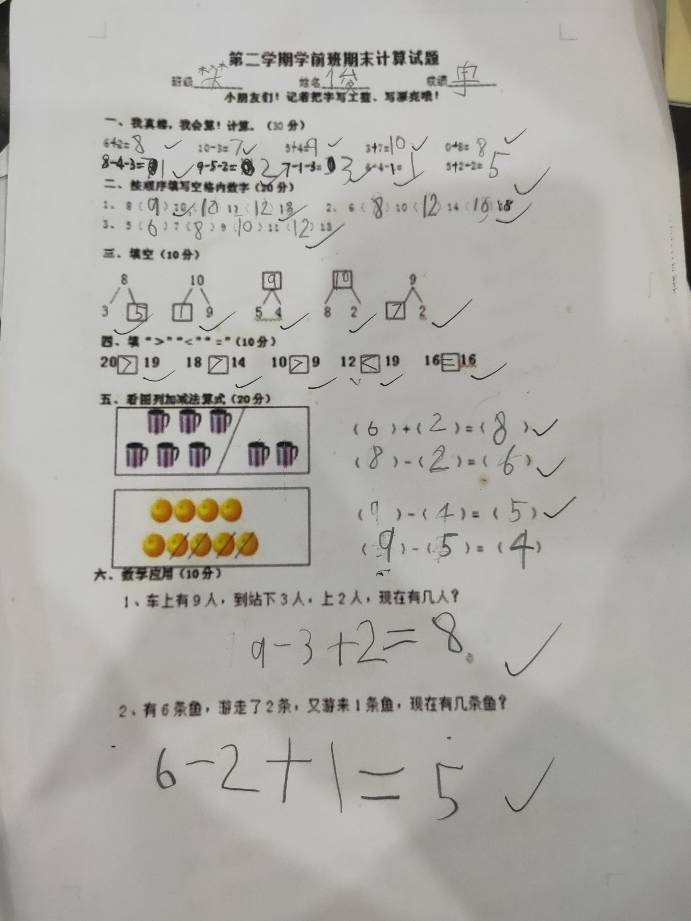 第二学期学前班期末计算试题
班级 姓名 成绩
小朋友们！记着把字写工整、写漂亮哦！
一、我真棒，我会算！计算。（30分）
6+2=8 10-3=7 5+4=9 3+7=10 0+8=8
8-4-3=1 9-5-2=2 7-1-3=3 -4-1=1 5+2-2=5
二、按顺序填写空格内数字（20分）
1、8（9）10（10 11（12）13 2、6（8）10（12）14（16）18
3、5（6）7（8）9（10）11（12）13
三、填空（10分）
8 10 9 10 9
3 5 1 9 5 4 8 2 7 2
四、填“>”“<”“=”（10分）
20>19 18>14 10>9 12<19 16=16
五、看图列加减法算式（20分）
（6）+（2）=（8）
（8）-（2）=（6）
（9）-（4）=（5）
（9）-（5）=（4）
六、数学应用（10分）
1、车上有9人，到站下3人，上2人，现在有几人？
9-3+2=8
2、有6条鱼，游走了2条，又游来1条鱼，现在有几条鱼？
6-2+1=5